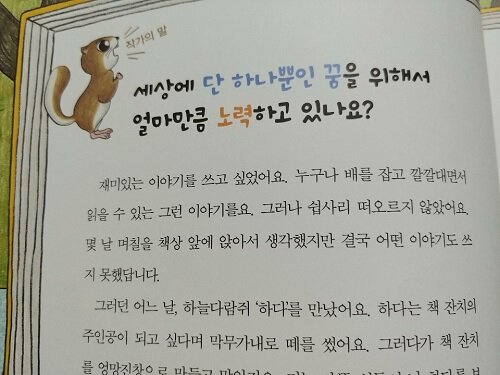 작가의 말
세상에 단 하나뿐인 꿈을 위해서
얼마만큼 노력하고 있나요?
재미있는 이야기를 쓰고 싶었어요. 누구나 배를 잡고 깔깔대면서
읽을 수 있는 그런 이야기를요. 그러나 쉽사리 떠오르지 않았어요.
몇 날 며칠을 책상 앞에 앉아서 생각했지만 결국 어떤 이야기도 쓰
지 못했답니다.
그러던 어느 날, 하늘다람쥐 '하다'를 만났어요. 하다는 책 잔치의
주인공이 되고 싶다며 막무가내로 떼를 썼어요. 그러다가 책 잔치
를 엉망진창으로 만들고 말았지요.